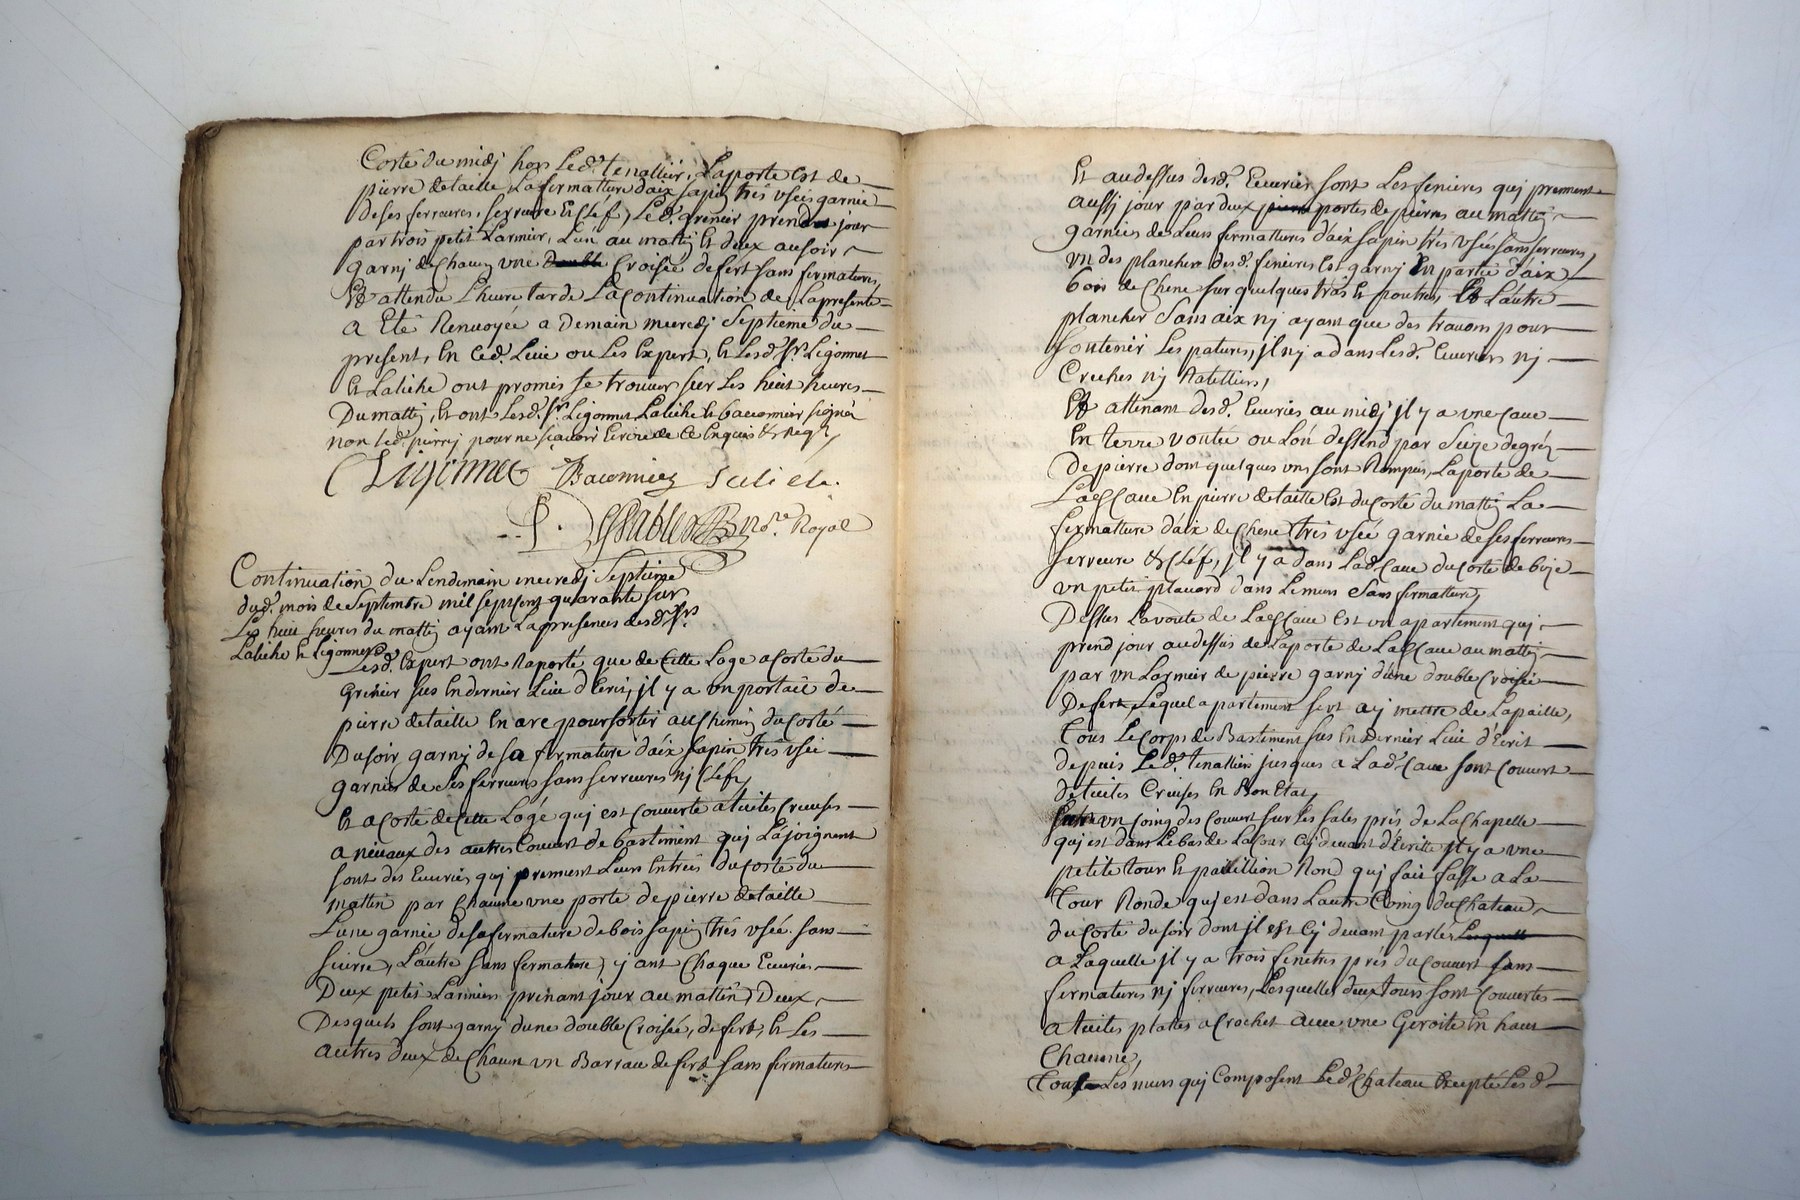 Costé du midj hors Led.^t tenallier, Laporte Est de
pierre detaille, Lafermatture d'aix sapin três vsées garnie
deses ferreures, serreure Et Cléf, Led.^t grenier prend jour
par trois petit Larmier, L'un au mattin Et deux ausoir
garnj de chacun vne Croisée de fert sans fermatures,
Et attendu L'heure tarde La Continuation de Lapresente
a Eté Renvoyée a Demain mecredj Septieme du
present, En Ced.^t Lieu ou Les Expert, & Lesd.^t s.^rs Ligonnet
Et Laliche ont promis se trouver sur Les huit heures
Du mattin, Et ont Lesd.^t s.^rs Ligonnet Laliche Et baconnier signéz
non Led.^t pierrj pour ne sçavoir Ecrire de Ce Enquis & Req.^s
Ligonnet Baconnier Laliche
no.^re Royal
Continuation du Lendemain mecredj Septieme
dud.^t mois de Septembre mil septcent quarante sur
Les huit heures du mattin ayant Lapresence desd.^t s.^rs
Laliche Et Ligonnet
Lesd.^t Expert ont Raporté que de Cette Loge a Costé du
grenier sus En dernier Lieu d'Ecrit, jl y a vn portail de
pierre detaille En arc pour sortir au Chemin du Costé
Du soir garnj de sa fermature d'aix sapin três vsée
garnie de Ses ferreures sans serreures nj Cléf,
Et a Costé de Cette Logé quj est Couverte a tuiles Creuses
a niveaux des autres Couvert de bastiment quj La joignent
sont des Ecuries quj prennent Leurs Entrées du Costé du
mattin par Chacune vne porte de pierre detaille
L'une garnie de safermature de bois sapin três vsée sans
serrure, L'autre sans fermature, y ant Chaque Ecuries
Deux petit Larmiers prenant jour au mattin, Deux
Desquels sont garnj dune double Croisée, de fert, Et Les
autres deux de Chacun vn Barrau de fert sans fermatures
Et audessus desd.^t Ecuries sont Les fenieres quj prennent
aussj jour par deux portes de pierres au mattin
garnies de Leurs fermattures d'aix sapin três vsées sans serreures,
vn des plancher desd.^t fenieres Est garnj En partie d'aix
bois de Chene sur quelques tras Et poutres, Et L'autre
plancher Sans aix nj ayant que des travons pour
soutenir Les patures, jl nj a dans Lesd.^t Ecuries nj
Creches nj Ratelliers,
Et attenant desd.^t Ecuries au midj jl y a vne Cave
En terre voutée ou Lon dessend par Seize degréz
De pierre dont quelques vns sont Rompus, Laporte de
Lad.^t Cave En pierre detaille Est du Costé du mattin La
fermatture d'aix de Chene três vsée garnie de ses ferreures
serreure & Cléf, jl y a dans Lad.^t Cave du Costé de bize
vn petit placard dans Le murs Sans fermatture,
Dessus La voute de Lad.^t Cave Est vn apartement quj
prend jour au dessus de Laporte de Lad.^t Cave au mattin
par vn Larmier de pierre garnj d'une double Croisée
De fert, Lequel apartement sert a y mettre de La paille,
Tous Le Corps de Bastiment sus En Dernier Lieu d'Ecrit
depuis Led.^t tenallier jusques a Lad.^t Cave sont Couvert
de tuiles Creuses En Bon Etat,
Sur vn Coing des Couvert sur Les sales prés de La Chapelle
quj est dans Le bas de La Cour Cy devant d'Ecritte jl y a vne
petite tour Et pavillion Rond quj fait fasse a La
Tour Ronde quj est dans L'autre Coing du Chateau
du Costé du soir dont jl est Cy devant parlér
a Laquelle jl y a trois fenetres prés du Couvert sans
fermatures nj ferreures, Lesquelles deux tours sont Couvertes
a tuiles plattes a Crochet avec vne Geroite En haut
Chacune,
Tous Les murs quj Composent Led.^t Chateau Excepté Les d.^t